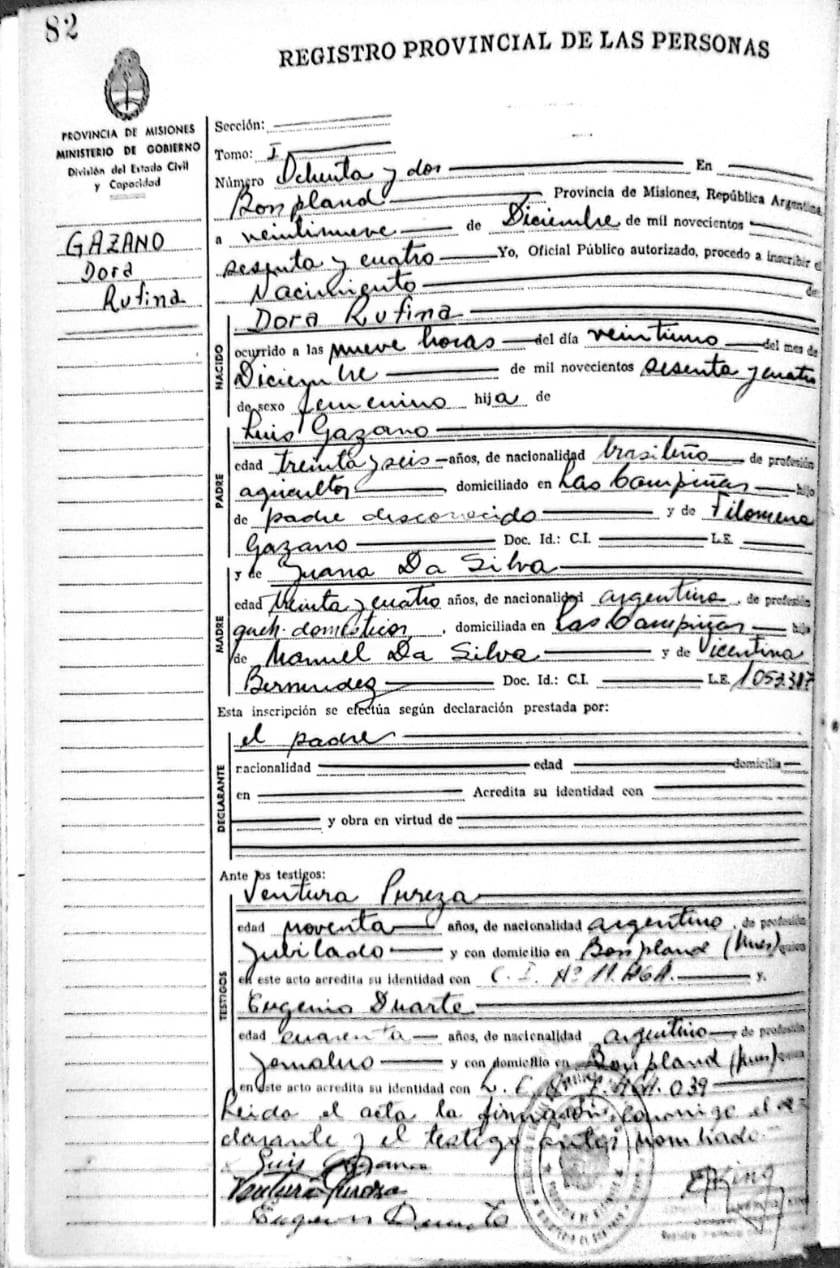 82
REGISTRO PROVINCIAL DE LAS PERSONAS
PROVINCIA DE MISIONES
MINISTERIO DE GOBIERNO
División del Estado Civil
y Capacidad
GAZANO
Dora
Rufina
Sección:
Tomo: I
Número Ochenta y dos En
Bonpland Provincia de Misiones, República Argentina
a veintinueve de Diciembre de mil novecientos
sesenta y cuatro Yo, Oficial Público autorizado, procedo a inscribir el
Nacimiento de
Dora Rufina
NACIDO
ocurrido a las nueve horas del día veintiuno del mes de
Diciembre de mil novecientos sesenta y cuatro
de sexo femenino hija de
Luis Gazano
PADRE
edad treinta y seis años, de nacionalidad brasileño de profesión
agricultor domiciliado en Las Campiñas hijo
de padre desconocido y de Filomena
Gazano Doc. Id.: C.I. L.E.
MADRE
y de Juana Da Silva
edad treinta y cuatro años, de nacionalidad argentina, de profesión
queh. domésticos, domiciliada en Las Campiñas hija
de Manuel Da Silva y de Vicentina
Bermudez Doc. Id.: C.I. L.E.
Esta inscripción se efectúa según declaración prestada por:
DECLARANTE
el padre
nacionalidad edad domicilia
en Acredita su identidad con
y obra en virtud de
Ante los testigos:
TESTIGOS
Ventura Pureza
edad noventa años, de nacionalidad argentino, de profesión
Jubilado y con domicilio en Bonpland (Mnes) quien
en este acto acredita su identidad con C. I. Nº y.
Eugenio Duarte
edad cuarenta años, de nacionalidad argentino de profesión
Jornalero y con domicilio en Bonpland (Mnes) quien
en este acto acredita su identidad con 039
Leída el acta la firman conmigo el de-
clarante y el testigo antes nombrado
Luis Gazano
Ventura Pureza
Eugenio Duarte